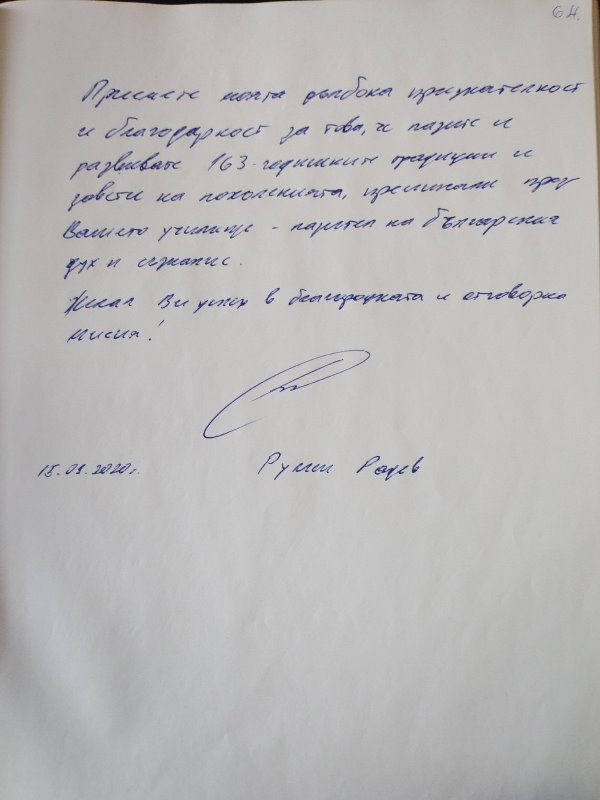 64.
Приемете моята дълбока признателност
и благодарност за това, че пазите и
развивате 163-годишните традиции и
завети на поколенията, преминали през
Вашето училище - паметта на българския
дух и съзнание.
Желая Ви успех в благородната и отговорна
мисия!
15.09.2020г. Румен Радев